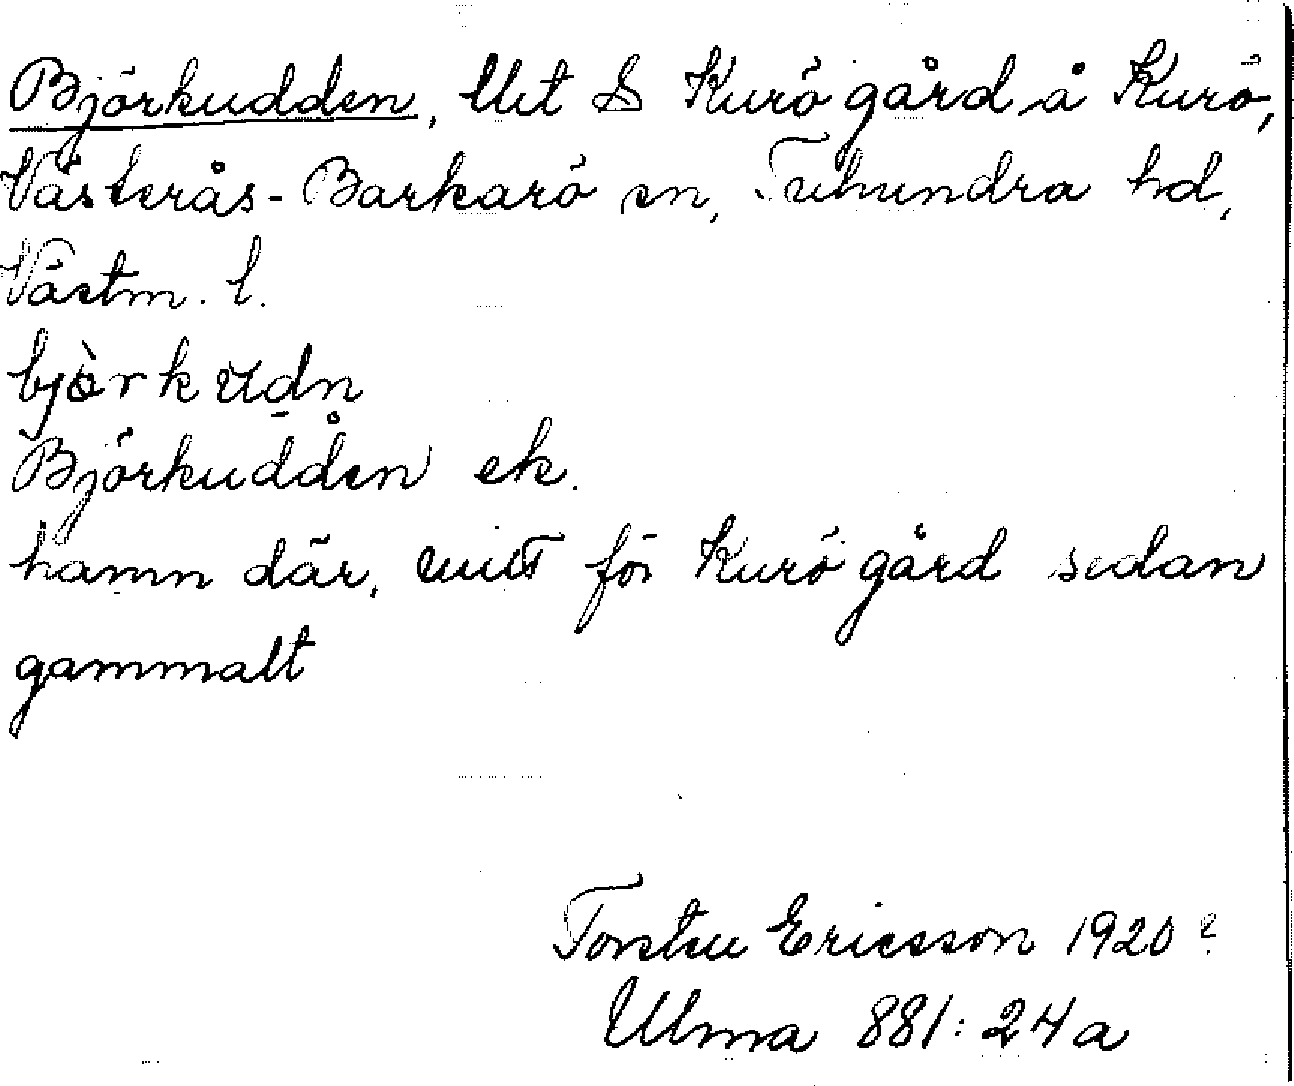 Björkudden, Utt S Kurö gård å Kurö,
Västerås-Barkarö sn, Tuhundra hd,
Västm. l.
bjòrkudn
Björkudden ek.
hamn där, mitt för Kurö gård sedan
gammalt
Torsten Ericsson 1920?
Ulma 881:24a